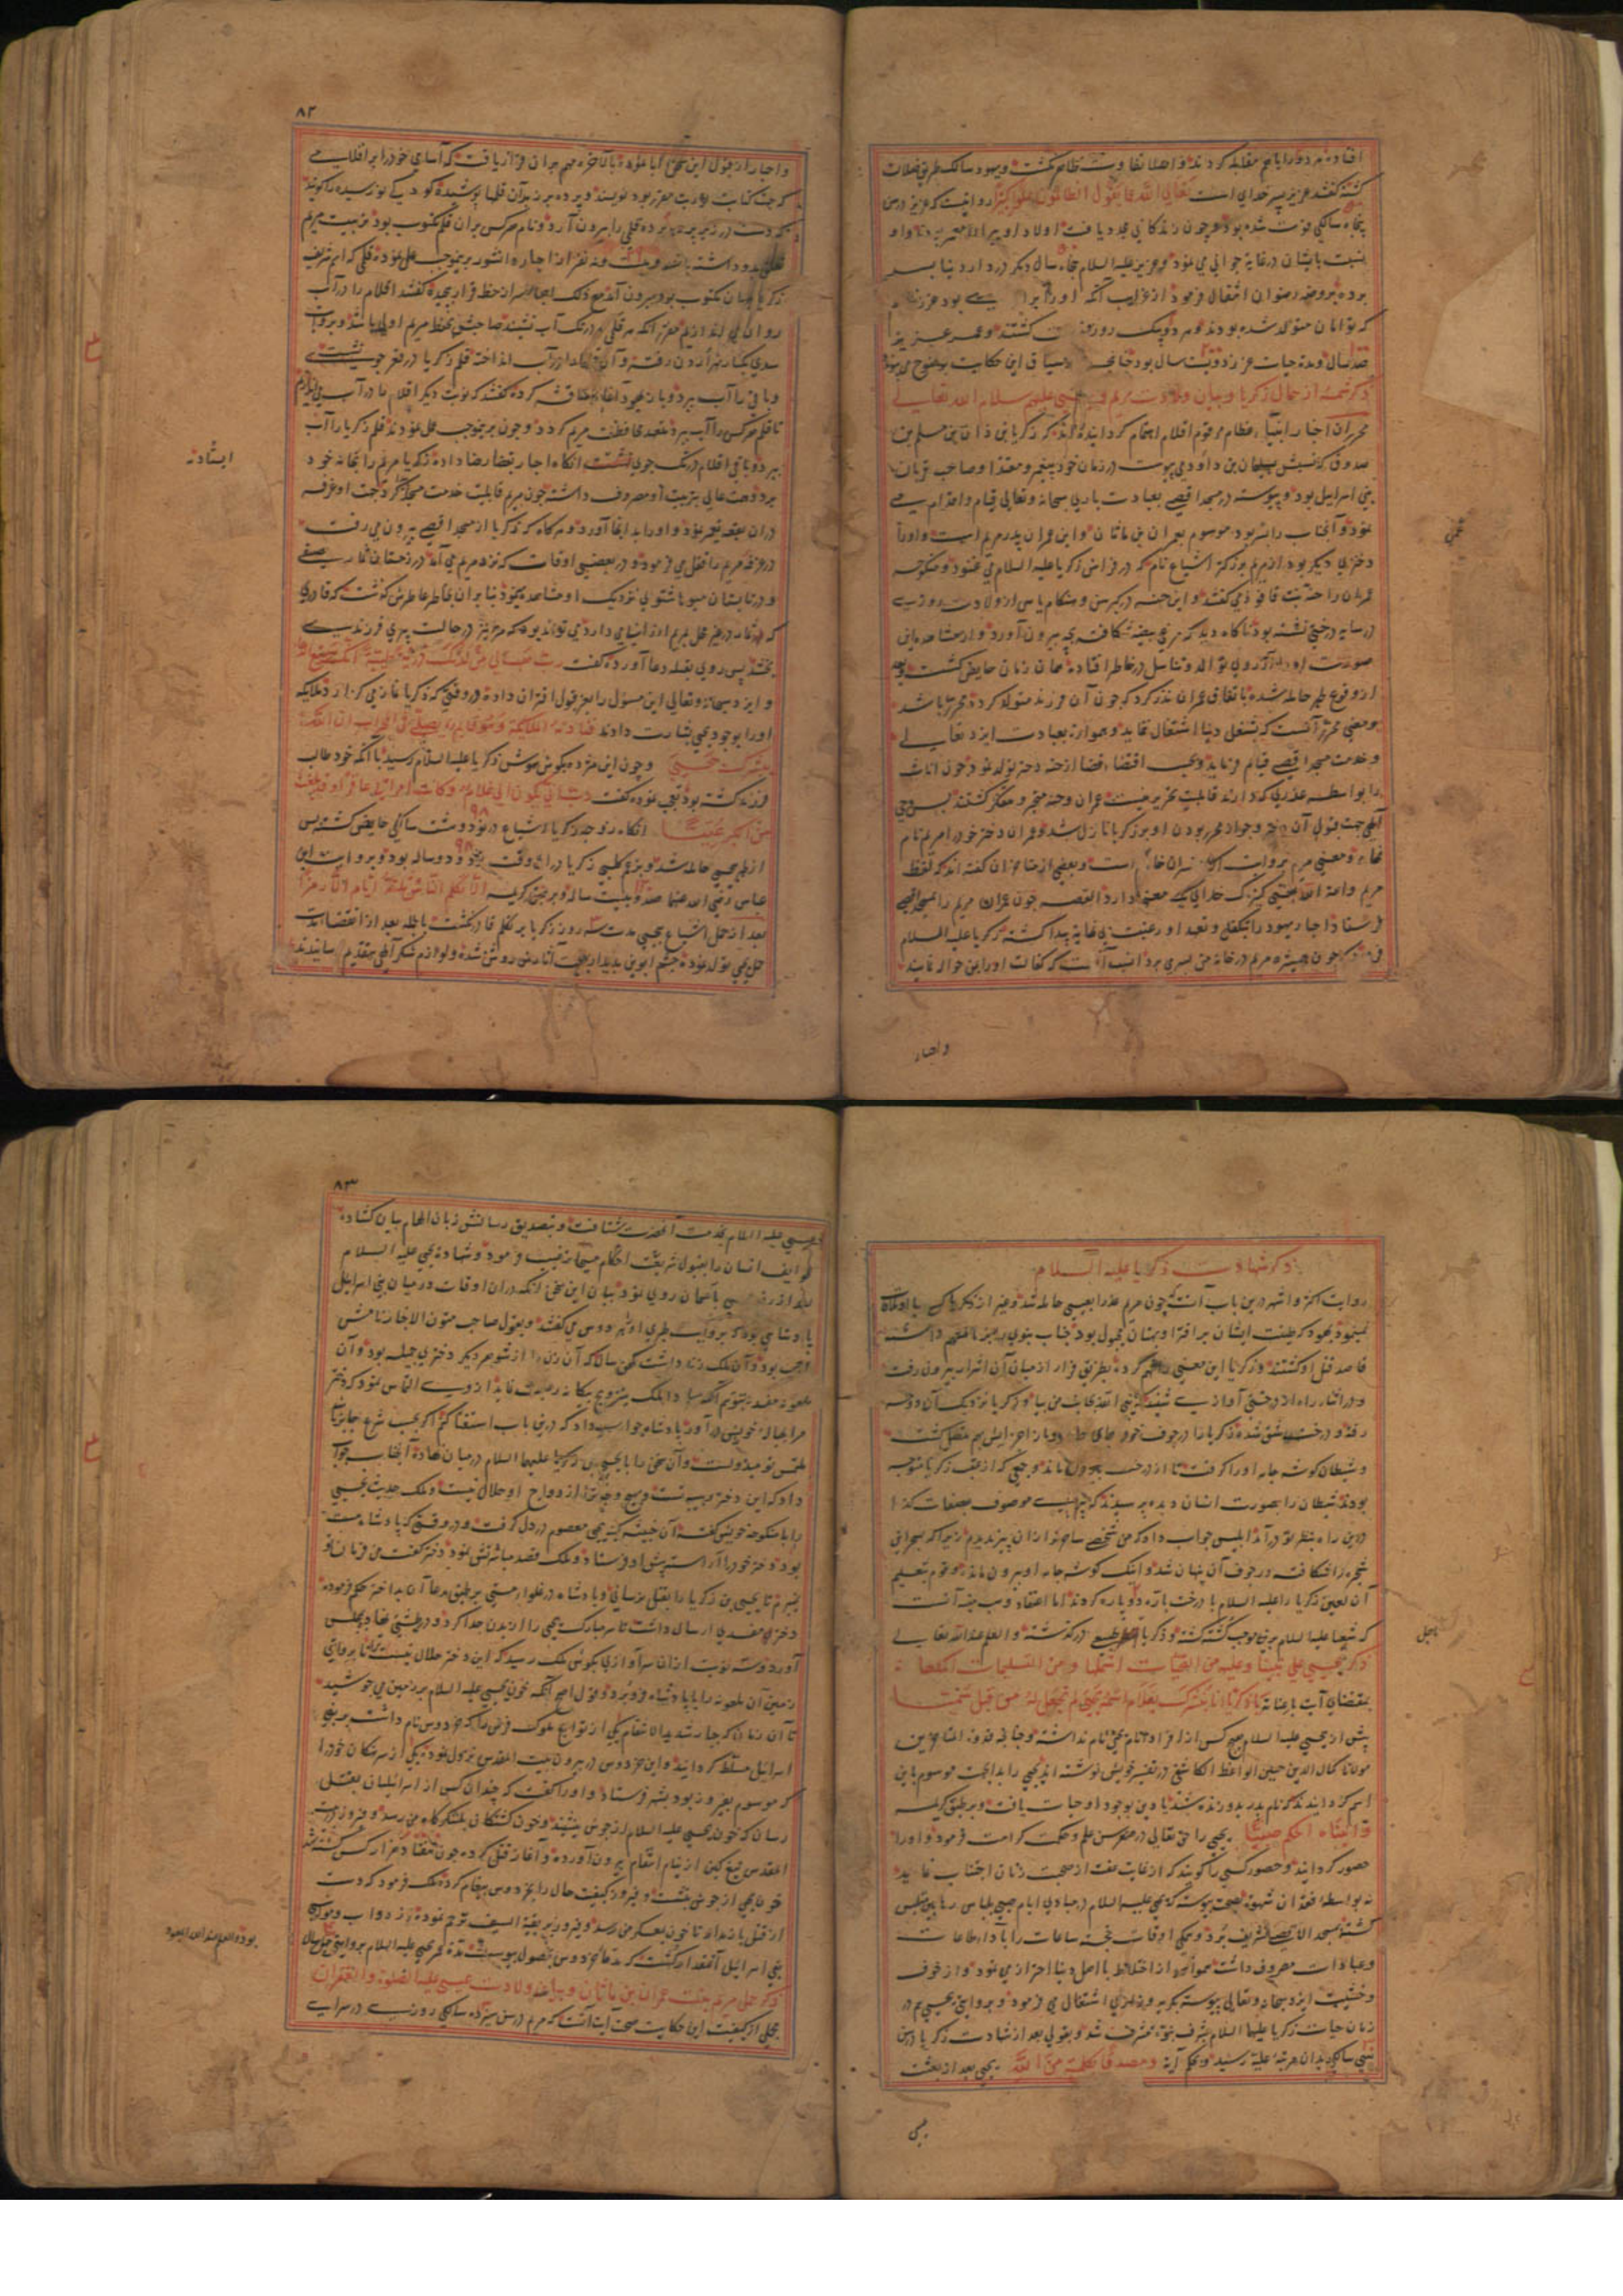 افتاده هر دو را با هم مقابله کردند و اصلا تفاوت ظاهر نگشت و یهود سالک طریق ضلالت
کشته گفتند عزیر پسر خدای است تعالی الله عما یقول الظالمون علوا کبیرا روایتست که عزیر در سن
پنجاه سالگی فوت شده بود و چون زندگانی مجدد یافت اولاد او پیر
نسبت بایشان در غایة جوانی می نمود و عزیر علیه السلام پنجاه سال دیگر در دار دنیا بسر
برده بروضه رضوان انتقال فرمود از غرایب آنکه او را برادری بود عزیز نام
که توامان متولد شده بودند و هر دو یک روز فوت گشتند و عمر عزیر
صد سال و مدة حیات عزیز دویست سال بود چنانچه از سیاق این حکایت بوضوح می پیوندد
ذکر شمهٔ از حال زکریا و بیان ولادت مریم و یحیی علیهم سلام الله تعالی
محرران اخبار انبیاء عظام مرقوم اقلام اهتمام گردانیده اند که زکریا بن
صدوق که نسبتش بسلیمان بن داود می پیوست در زمان خود پیغمبر و مقتدا و صاحب قربان
بنی اسرائیل بود و پیوسته در مسجد اقصی بعبادت باری سبحانه و تعالی قیام و اقدام می
نمود و آنجناب را بنی عمران بن ماثان و این عمران پدر مریم است و او را
دختری دیگر بود از مریم بزرگتر اشیاع نام که در فراش زکریا علیه السلام می غنود و منکوحه
عمران را حنه بنت فاقوذ می گفتند و این حنه در کبر سن و هنگام یاس از ولادت روزی
در سایه درختی نشسته بود ناگاه دید که مرغی بیضه شکافته بچه بیرون آورد و از مشاهده این
صورت او را آرزوی توالد و تناسل در خاطر افتاده همان زمان حایض گشت و بعد
از وقوع طهر حامله شده باتفاق عمران نذر کرد که چون آن فرزند متولد گردد محرر باشد
و معنی محرر آنست که بشغل دنیا اشتغال ننماید و همواره بعبادت ایزد تعالی
و خدمت مسجد اقصی قیام فرماید و بحسب اقتضاء قضا از حنه دختر تولد نمود و چون اناث
را بواسطه عذری که دارند قابلیت تحریر نیست عمران و حنه متحیر و متفکر گشتند پس وحی
الهی جهت قبول آن دختر و جواز محرر بودن او بر زکریا نازل شد و عمران دختر خود را مریم نام
نهاد و معنی مریم بروایت است و بعضی از متاخران گفته اند که لفظ
مریم و امة الله بمعنی کنیزک خدای یک معنی دارد القصه چون عمران مریم را بمسجد اقصی
فرستاد احبار یهود را بتکفل و تعهد او رغبت بی غایة پیدا گشته زکریا علیه السلام
فرمود که چون همشیره مریم در خانه من بسر می برد انسب آنست که کفالت او را بمن حواله نمایند
واحبار
۸۲
واحبار از قبول این سخن ابا نموده بالاخره مهم بران قرار یافت که آسامی خود را بر اقلامی
که جهت کتابت توریت مقرر بود نویسند و پرده بر زبر آن قلمها پوشیده کودکی نورسیده را گویند
که دست در زیر پرده برده قلمی را بیرون آرد و نام هر کس بران قلم مکتوب بود تربیت مریم
تعلق بدو داشته باشد و بیست و نه نفر از احبار دانشور بموجب عمل نموده قلمی که اسم شریف
زکریا بران مکتوب بود بیرون آمد مع ذلک احبار سر از حفظ قرار پیچیده گفتند اقلام را در آب
روان می اندازیم مقرر آنکه هر قلمی که در تک آب نشیند صاحبش بحفظ مریم اولی باشد و بروایت
سدی کنار نهر اردن رفته و آن قلمها را در آب انداخته قلم زکریا در قعر جوی نشست
و باقی را آب برد و باز یهود آغاز مناقشه کرده گفتند که نوبت دیگر اقلام ما در آب می اندازیم
تا قلم هر کس را آب ببرد متصدی محافظت مریم گردد و چون بموجب عمل نمودند قلم زکریا را آب
ببرد و باقی اقلام در تک جوی نشست آنگاه احبار بقضا رضا داده زکریا مریم را بخانه خود
برد و همت عالی بتربیت او مصروف داشته چون مریم قابلیت خدمت مسجد پیدا کرد جهت او غرفه
در ان بقعه تعمیر نمود و او را بدانجا آورد و هر گاه که زکریا از مسجد اقصی بیرون می رفت
در غرفه مریم را قفل می فرمود و در بعضی اوقات که نزد مریم می آمد در زمستان ثمار صیفی
و در تابستان میوه شتوی نزدیک او مشاهده می نمود بنابران بخاطر عاطرش گذشت که قادری
که ثمار در غیر محل بمریم ارزانی می دارد می تواند بود که مرا نیز در حالت پیری فرزندی
بخشد پس روی بقبله دعا آورده گفت رب هب لی من لدنک ذریة طیبة انک سمیع الدعاء
و ایزد سبحانه و تعالی این مسؤل را بعز قبول اقتران داده در وقتی که زکریا نماز می گزارد ملایکه
او را بوجود یحیی بشارت دادند فنادته الملائکة و هو قائم یصلی فی المحراب ان الله
یبشرک بیحیی و چون این مژده بگوش هوش زکریا علیه السلام رسید با آنکه خود طالب
فرزند گشته بود تعجب نموده گفت رب انی یکون لی غلام و کانت امراتی عاقرا و قد بلغت
من الکبر عتیا آنگاه زوجه زکریا اشیاع در نود و هشت سالگی حایض گشته پس
از طهر بیحیی حامله شد و بزعم کلبی زکریا در ان وقت نود و دو ساله بود و بروایت ابن
عباس رضی الله عنهما صد و بیست ساله و بر طبق کریمه الا تکلم الناس ثلثة ایام الا رمزا
بعد از حمل اشیاع بیحیی مدت سه روز زکریا بر تکلم قادر نگشت بالجمله بعد از انقضاء مدت
حمل یحیی تولد نموده چشم ابوین بدیدار بهجت آثارش روشن شده و لوازم شکر الهی بتقدیم رسانیدند
ایستاده
ذکر شهادت زکریا علیه السلام
روایت اکثر و اشهر درین باب آنست که چون مریم عذرا بعیسی حامله شد و غیر از زکریا کسی با او ملاقات
نمینمود یهود که طینت ایشان بر افترا و بهتان مجبول بود جناب نبوی را متهم داشته
قاصد قتل او گشتند و زکریا این معنی را فهم کرده بطریق فرار از میان آن اشرار بیرون رفت
و در اثناء راه از درختی آوازی شنید که یا نبی الله بجانب من بیا و زکریا نزدیک آن درخت
رفته و درخت شق شده زکریا را در جوف خود جای داد و باز اجزایش بهم متصل گشت
و شیطان گوشه جامه او را گرفت تا از درخت بیرون ماند و جمعی که از عقب زکریا متوجه
بودند شیطان را بصورت انسان دیده پرسیدند که پیری موصوف بصفات کذا
درین راه بنظر تو در آمد ابلیس جواب داد که من شخصی ساحرتر ازان پیر ندیدم زیرا که بسحر این
شجره را شکافته در جوف آن پنهان شد و اینک گوشه جامه او بیرون مانده و قوم بتعلیم
آن لعین زکریا را علیه السلام با درخت باره دو پاره کردند اما اعتقاد وهب بن منبه آنست
که شعیا علیه السلام برین موجب کشته گشته و زکریا باجل طبیعی در گذشته و العلم عند الله تعالی
ذکر یحیی علی نبینا و علیه من التحیات انماها و من التسلیمات اکملها
بمقتضای آیت با عنایة یا زکریا انا نبشرک بغلام اسمه یحیی لم نجعل له من قبل سمیا
پیش از یحیی علیه السلام هیچ کس از افراد انام یحیی نام نداشته و چنانچه قدوة المتاخرین
مولانا کمال الدین حسین الواعظ الکاشفی در تفسیر خویش نوشته اند یحیی را بدانجهت موسوم باین
اسم گردانیدند که نام پدر بدو زنده شد یا دین بوجود او حیات یافت و بر طبق کریمه
و آتیناه الحکم صبیا یحیی را حق تعالی در صغر سن علم و حکمت کرامت فرمود و او را
حصور گردانید و حصور کسی را گویند که از غایت عفت از صحبت زنان اجتناب نماید
نه بواسطه فقدان شهوة بصحت پیوسته که یحیی علیه السلام در مبادی ایام صبی بلباس رهابین متلبس
گشته بمسجد الاقصی تشریف برد و همگی اوقات خجسته ساعات را باداء طاعات
و عبادات مصروف داشت همواره از اختلاط با اهل دنیا احتراز می نمود و از خوف
و خشیت ایزد سبحانه و تعالی پیوسته بگریه و زاری اشتغال می فرمود و بروایتی یحیی هم در
زمان حیات زکریا علیهما السلام بشرف نبوة مشرف شد و بقولی بعد از شهادت زکریا در سن
سی سالگی بدان مرتبه علیه رسید و بحکم آیه و مصدقا بکلمة من الله یحیی بعد از بعثت
باجل
۸۳
عیسی علیه السلام بخدمت آنحضرت شتافت و بتصدیق رسالتش زبان الهام بیان گشاده
طوایف انسان را بقبول شریعت و احکام مسیحا ترغیب فرمود و شهادة یحیی علیه السلام
بعد از رفع عیسی بآسمان روی نمود بیان این سخن آنکه دران اوقات در میان بنی اسرائیل
پادشاهی بود که بروایت طبری او را هردوس می گفتند و بقول صاحب متون الاخبار نامش
احب بود و آن ملک زنی داشت کهن سال که آن زن را از شوهر دیگر دختری جمیله بود و آن
ملعونه معمره بتوهم آنکه مبادا ملک بتزویج بیگانه رغبت نماید از وی التماس نمود که دختر
مرا بحباله خویش در آور پادشاه جواب داد که درین باب استفتا کنم اگر بحسب شرع جایز باشد
ملتمس تو مبذولست و آن سخن را با یحیی بن زکریا علیهما السلام در میان نهاده آنجناب جواب
داد که این دختر ربیبه تست و بهیچ وجه ازدواج او حلال نیست و ملک حدیث یحیی
را با منکوحه خویش گفته آن خبیثه کینه یحیی معصوم در دل گرفت و در وقتی که پادشاه مست
بود دختر خود را آراسته پیش او فرستاد و ملک قصد مباشرتش نمود دختر گفت من فرمان تو
نبرم تا یحیی بن زکریا را بقتل نرسانی و پادشاه در غلواء مستی بر طبق مدعا آن بد اختر حکم فرموده
دختر مفسدی ارسال داشت تا سر مبارک یحیی را از بدن جدا کرد و در طشتی نهاد بمجلس
آورد و سه نوبت ازان سر آوازی بگوش ملک رسید که این دختر حلال نیست ترا بروایتی
زمین آن ملعونه را با پادشاه فرو برد و قول اصح آنکه خون یحیی علیه السلام بر زمین می جوشید
تا آن زمان که جبار شدید الانتقام یکی از توابع ملوک فرس را که خردوس نام داشت بر بنی
اسرائیل مسلط گردانید و این خردوس در بیرون بیت المقدس نزول نموده یکی از سرهنگان خود را
که موسوم بفیروز بود بشهر فرستاد و او را گفت که چندان کس از اسرائیلیان بقتل
رسان که خون یحیی علیه السلام از جوش بنشیند و خون کشتگان بلشکرگاه من رسد و فیروز در بیت
المقدس تیغ کین از نیام انتقام بیرون آورده و آغاز قتل کرده چون هفتاد هزار کس کشته شد
خون یحیی از جوش بنشست و فیروز کیفیت حال را بخردوس پیغام کرده ملک فرمود که دست
از قتل باز ندارد تا خون بمعسکر من رسد و فیروز بر بقیة السیف ترحم نموده از دواب و مواشی
بنی اسرائیل آنقدر کشت که مدعای خردوس بحصول پیوست مدة عمر یحیی علیه السلام بروایتی چهل سال
ذکر حمل مریم بنت عمران بن ماثان و بیان ولادت عیسی علیه الصلوة و الغفران
مجملی از کیفیت این حکایت صحت آیت آنست که مریم در سن سیزده سالگی روزی در سرای
بوده و العلم عند الله الودود